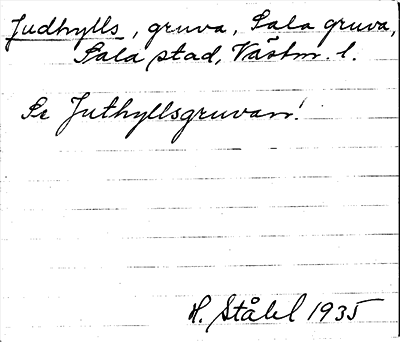 Judhylls, gruva, Sala gruva,
Sala stad, Västm. l.
Se Juthyllsgruvan!
H. Ståhl 1935